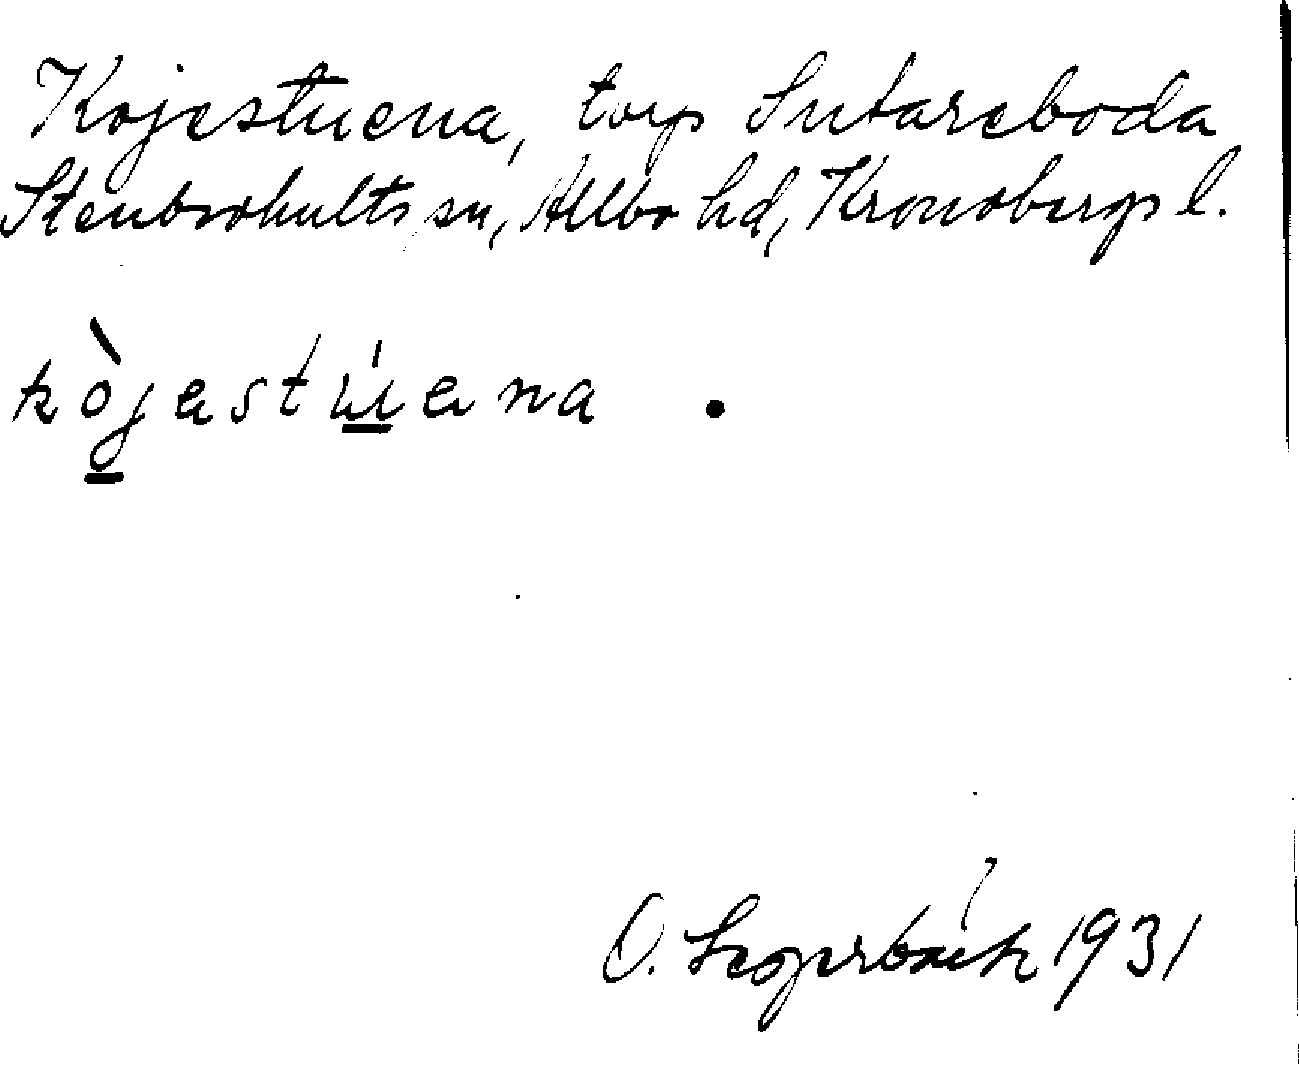 Kojestuena, torp Sutareboda
Stenbrohults sn, Allbo hd, Kronobergs l.
kòjestúena .
O. Segerbäck 1931